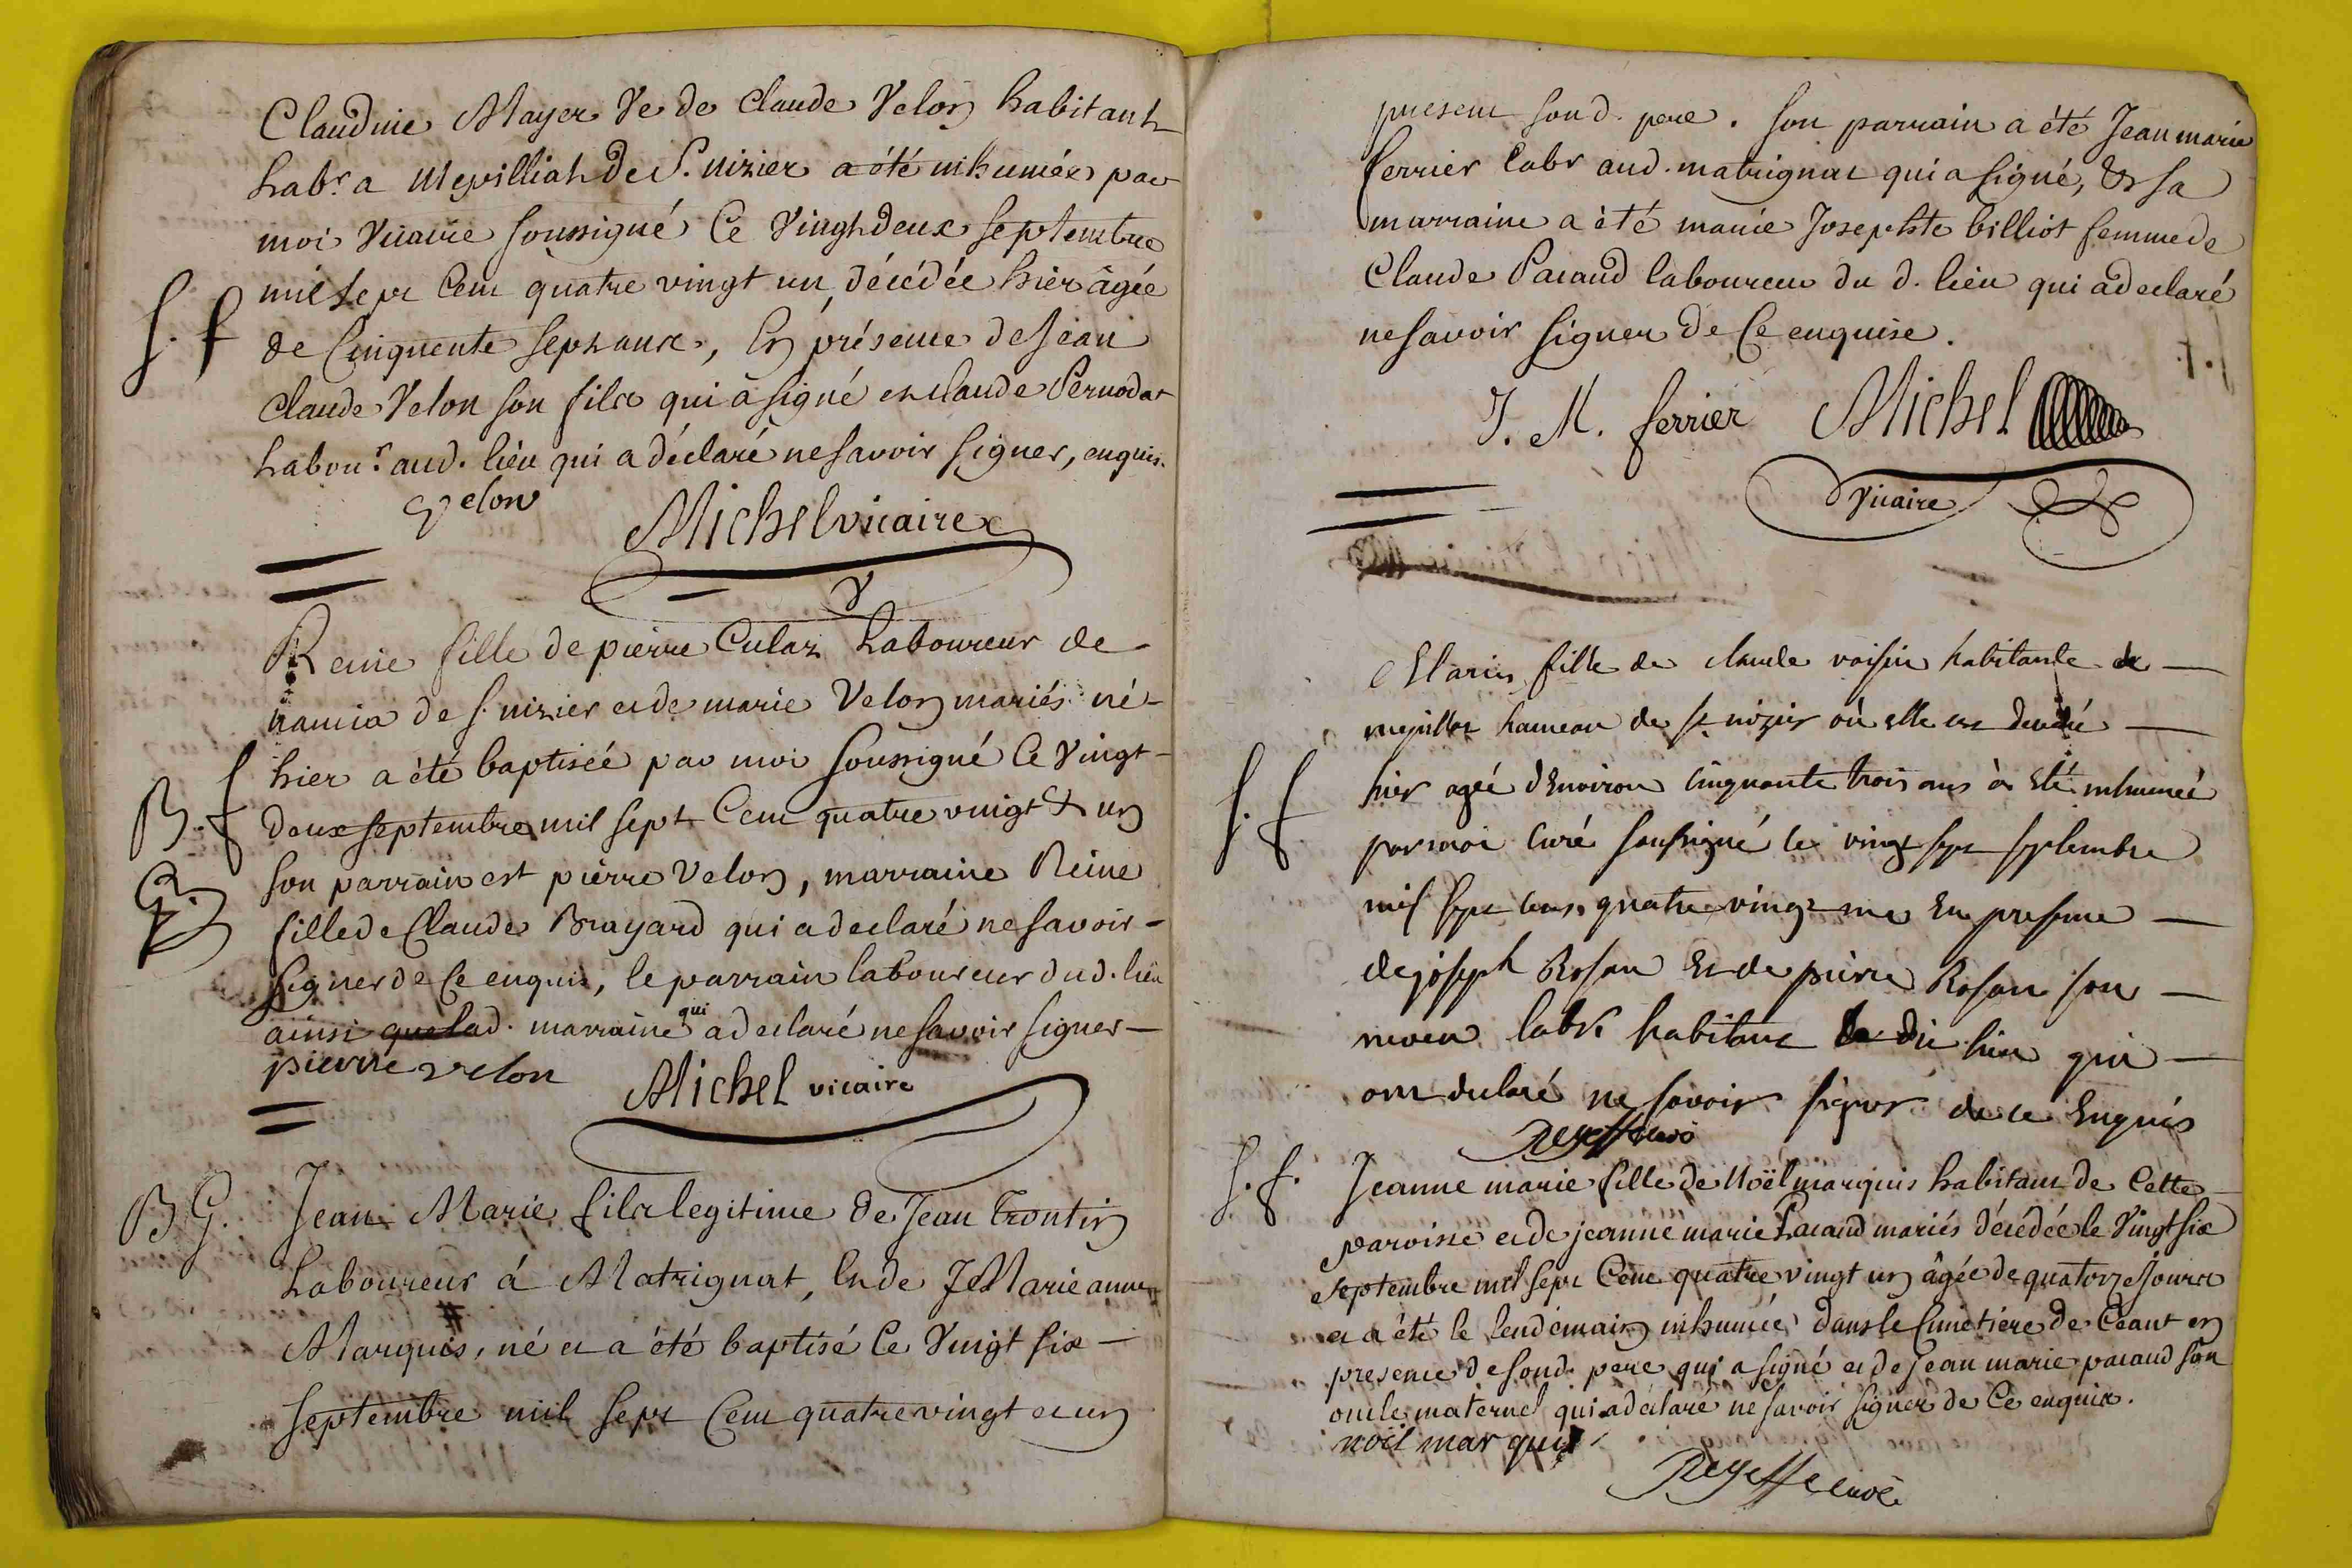 Claudine Mayer Ve de Claude Velon habitant
Labr. a Mepilliat de S. nizier a été inhumée par
moi vicaire soussigné le vingt deux septembre
mil sept cent quatre vingt un, décédée hier âgée
S. f
de cinquente sept ans, en présence de Jean
Claude Velon son fils qui a signé et Claude Pernodat
Labour. aud. lieu qui a déclaré ne savoir signer, enquis.
Velon
Michel vicaire
Reine fille de pierre Culaz Laboureur de
namia de S. nizier et de marie Velon mariés né
hier a été baptisée par moi soussigné le vingt
B. f
deux septembre mil sept cent quatre vingt & un
son parrain est pierre Velon, marraine Reine
fille de Claude Brayard qui a declaré ne savoir
signer de ce enquis, le parrain laboureur dud. lieu
ainsi que lad. marraine qui a declaré ne savoir signer
pierre velon
Michel vicaire
B G.
Jean Marie fils legitime de Jean trontin
Laboureur á Matrignat, et de J Marie anne
Marquis, né et a été baptisé le vingt six
septembre mil sept cent quatre vingt et un
present son d. pere. son parrain a été Jean marie
ferrier labr aud. matrignat qui a signé, & sa
marraine a été marie Josephte billiot femme de
Claude Pacaud laboureur du d. lieu qui a declaré
ne savoir signer de ce enquise.
J. M. ferrier Michel
vicaire
Marie fille de claude voisin habitante de
mepillat hameau de st nizier où elle est decedé
S. f.
hier agée d'Environ cinquante trois ans a Eté inhumée
par moi curé soussigné le vingt sept septembre
mil sept cens quatre vingt un En presence
de joseph Rosan Et de pierre Rosan son
neveu labr habitant du dit lieu qui
ont declaré ne savoir signer de ce Enquis
curé
S. f.
Jeanne marie fille de Noël marquis habitant de cette
paroisse et de jeanne marie Pacaud mariés décédée le vingt six
septembre mil sept cent quatre vingt un âgée de quatorze jours
et a été le lendemain inhumée dans le cimetière de Céant en
presence de son d. pere qui a signé et de jean marie pacaud son
oncle maternel qui a déclaré ne savoir signer de ce enquis.
noël marquis
curé